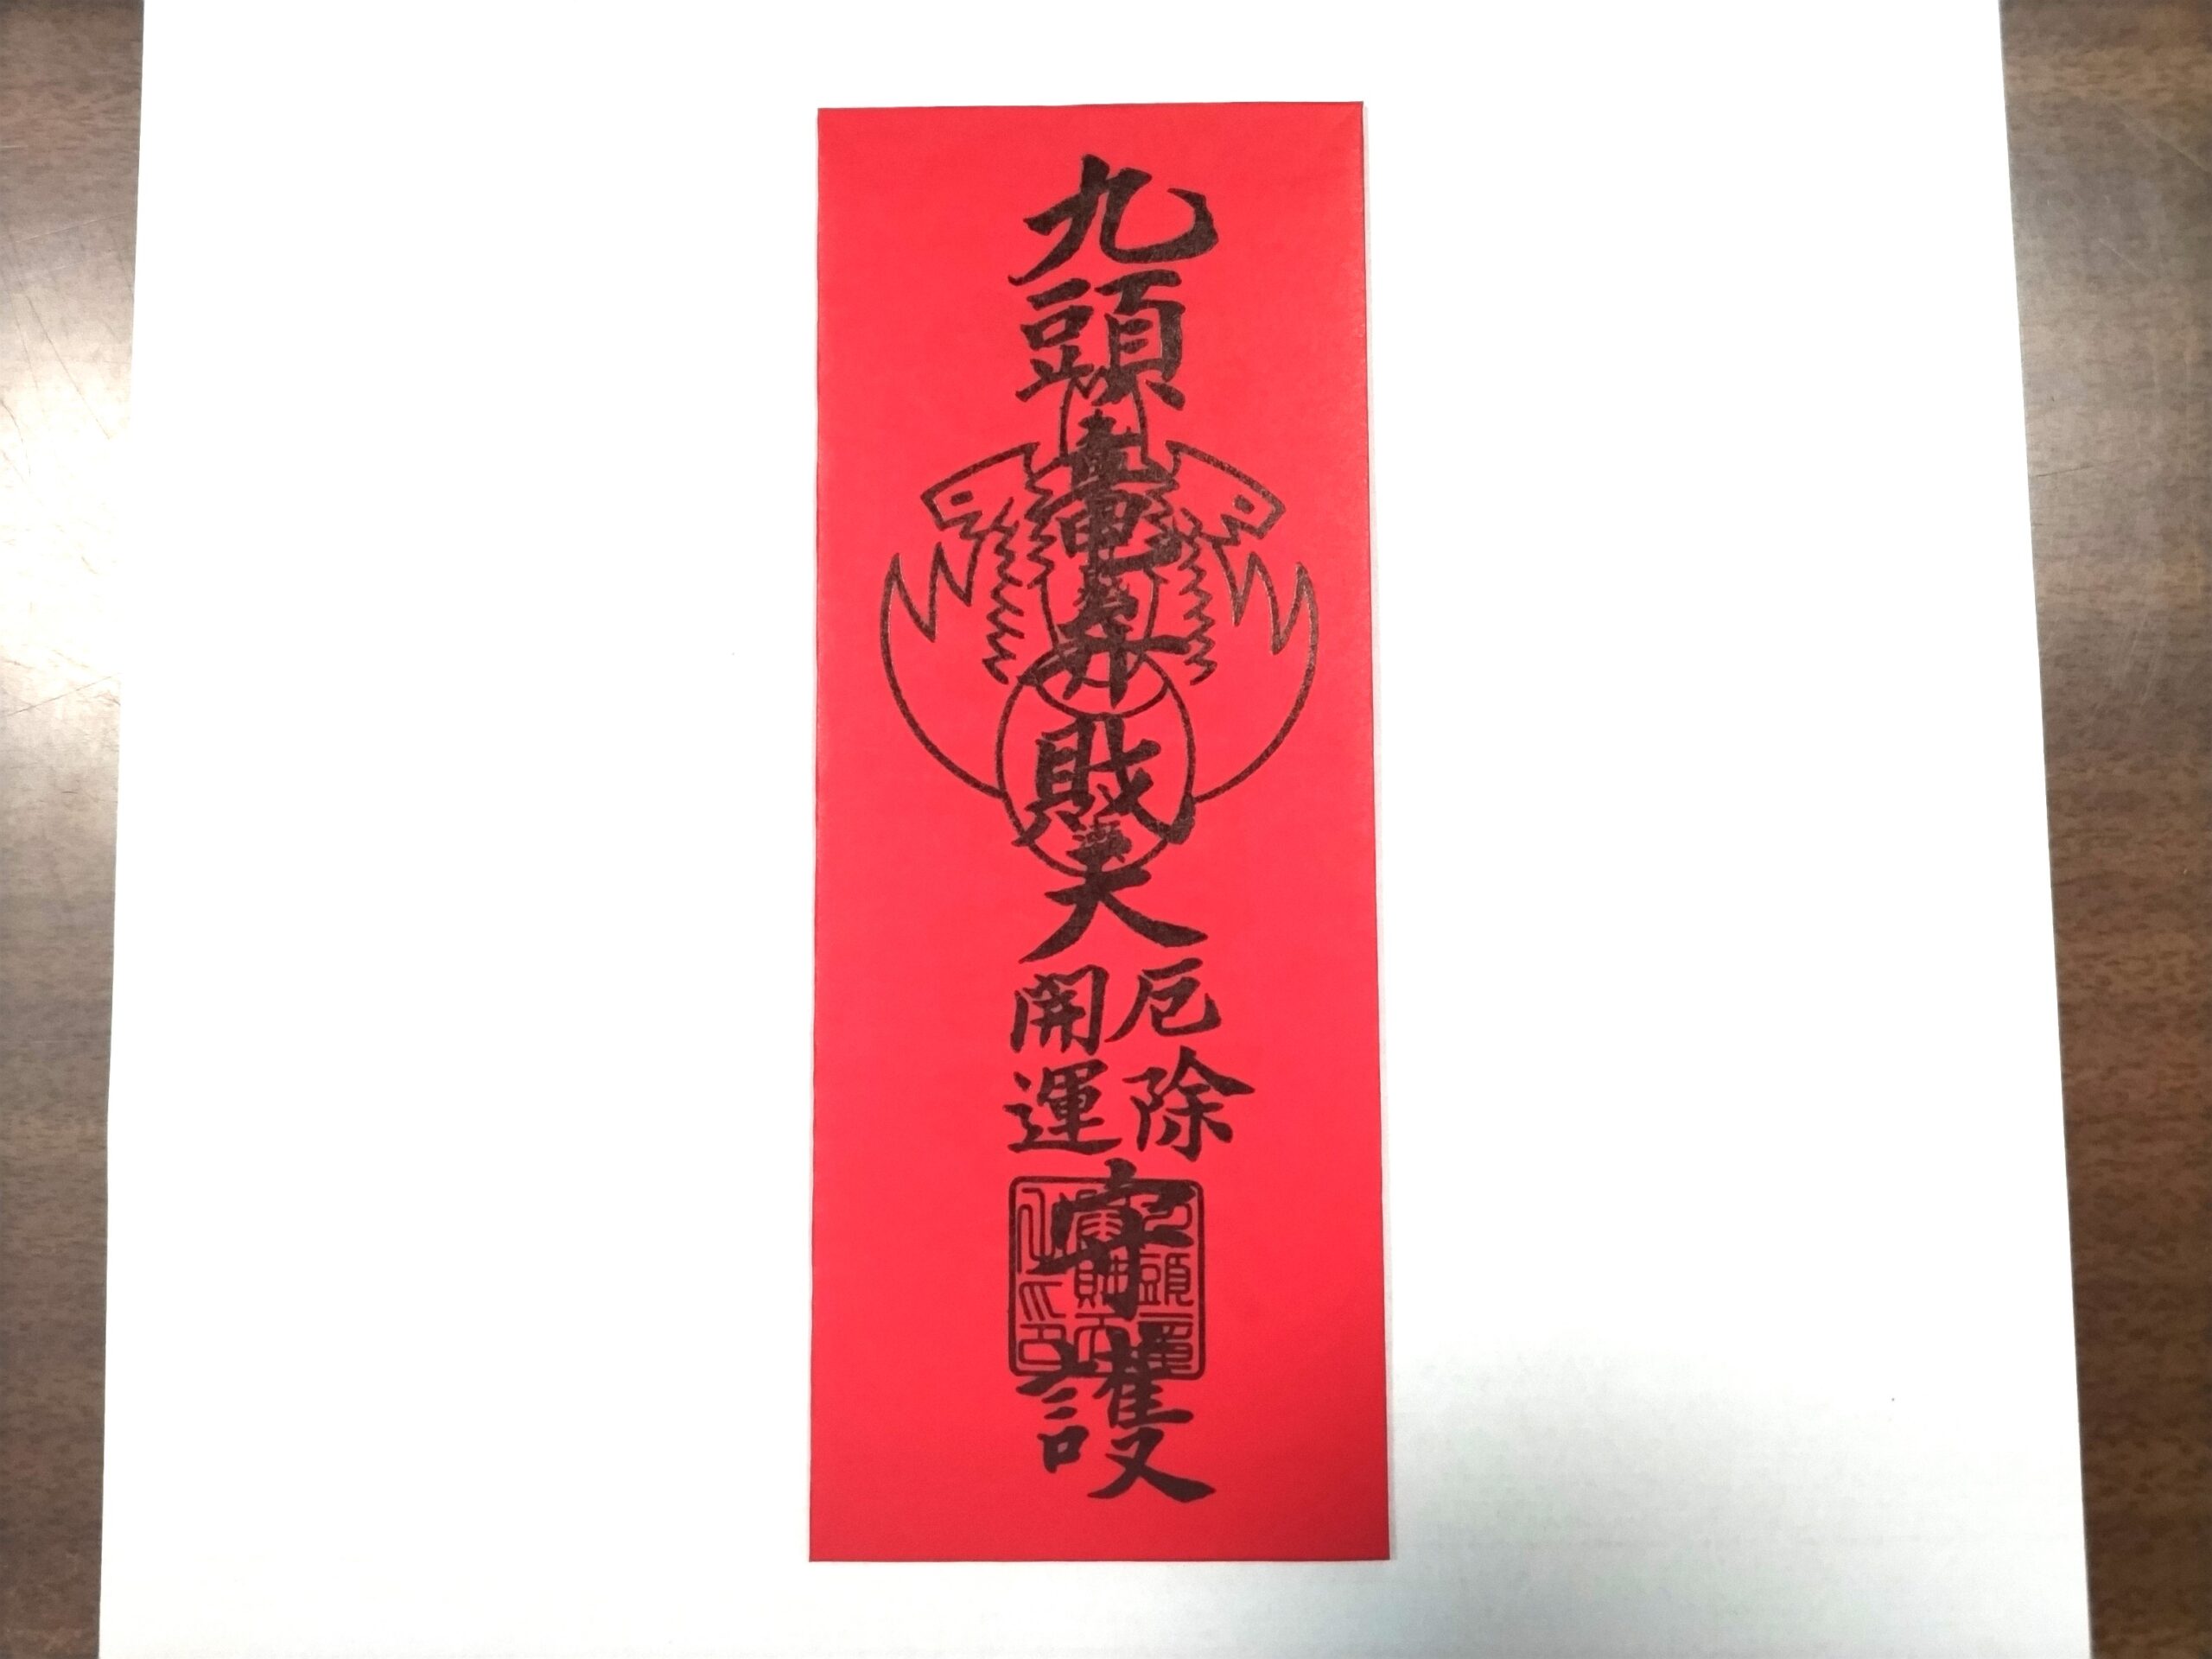 九頭竜弁財天
厄除
開運
守護